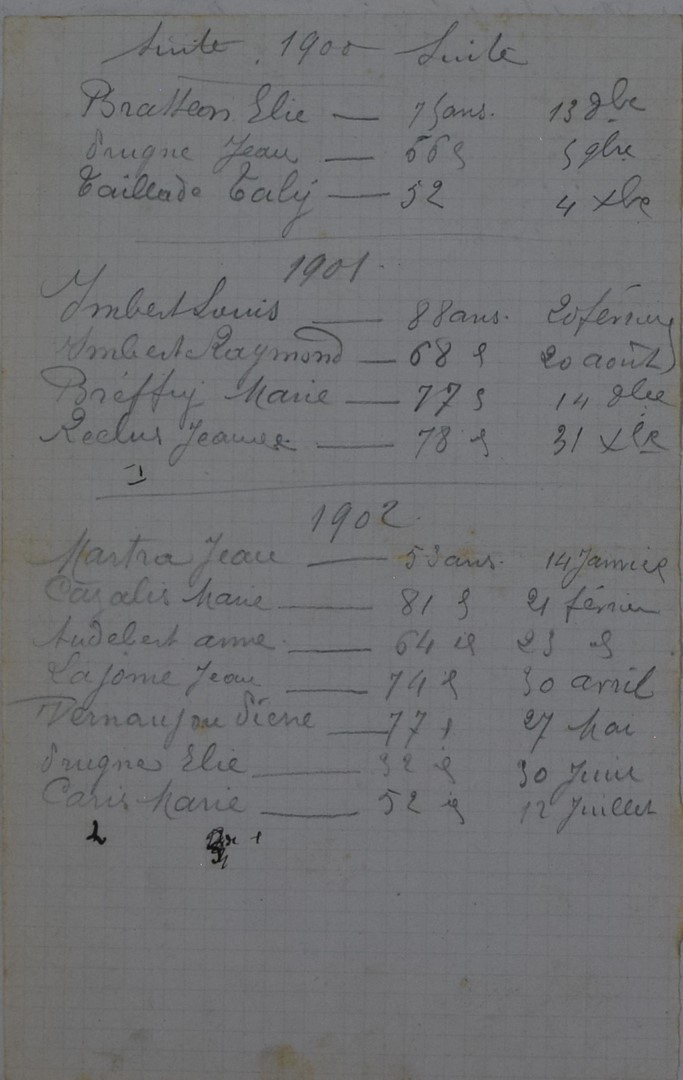 Suite . 1900 Suite
Bratteon Elie — 75 ans. 13 9bre
Prugne Jean — 66 5 9bre
Taillade Taly — 52 4 Xbre
1901
Imbert Louis — 88 ans. 20 février
Imbert Raymond — 68 20 août
Breffy Marie — 77 14 9bre
Reclus Jeanne — 78 31 Xbre
1902
Martra Jean — ans. 14 Janvier
Cazalis Marie — 81 21 février
Audebert anne — 64 23
Lajome Jean — 74 30 avril
Vernaujou Pierre — 77 27 Mai
Prugne Elie — 32 30 Juin
Caris Marie — 52 12 Juillet